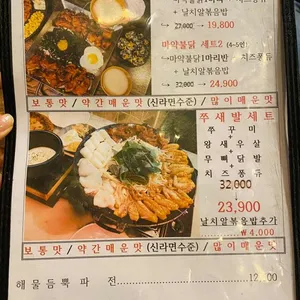 마약불닭1마리 + 치즈퐁듀
+
날치알볶음밥
→ 27,800 → 19,800
마약불닭 세트2 (4~5인)
→마약불닭1마리반 + 치즈퐁듀
+
날치알볶음밥
→ 32,800 → 24,900
보통맛 / 약간매운맛 (신라면수준) / 많이매운맛
쭈새발세트
쭈꾸미
+
왕새우살
+
무뼈닭발
+
치즈퐁듀
32,000
23,900
날치알볶음밥추가
₩4,000
보통맛 / 약간매운맛 (신라면수준) / 많이매운맛
해물듬뿍파전